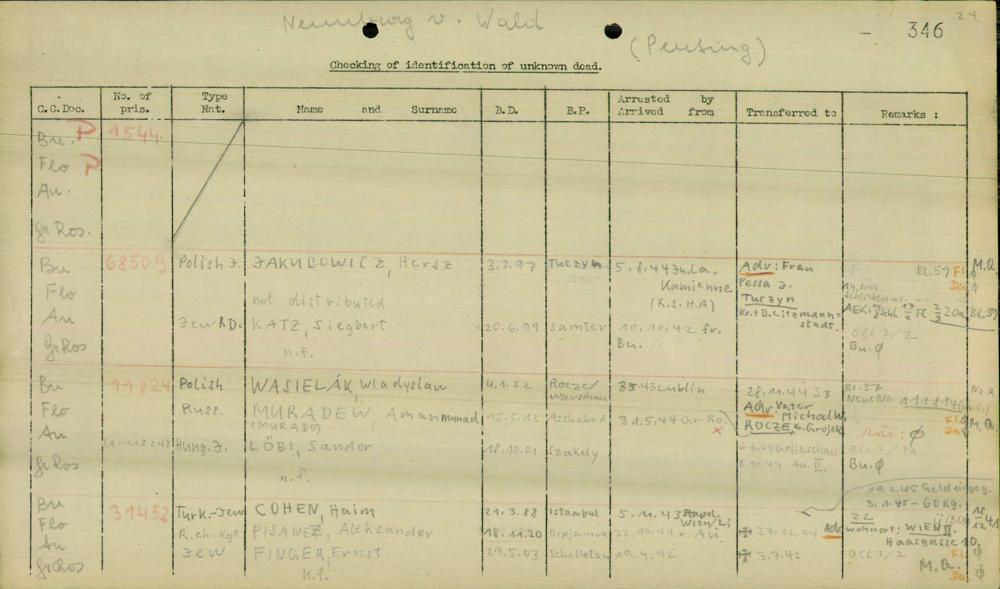 24.
Neunburg v. Wald
346
(Pensing)
Checking of identification of unknown dead.
C.C.Doc. No. of pris. Type Nat. Name and Surname B.D. B.P. Arrested by Arrived from Transferred to Remarks :
Bu. P 1544.
Flo P
Au.
gr Ros.
Bu 68509 Polish J. JAKUBOWICZ, Hersz 3.7.97 Tuszyn 5.8.44 Kamienne (R.S.H.A) Adv: Frau Pessa J. Tuszyn Kr.+D. Litzmannstadt. Bl.59 Fl. M.Q.
Flo not distributed
Au Jew RD. KATZ, Siegbert 20.6.99 Samter 10.10.42 fr. Bu. OCC 2/2
Gr Ros n.f. Bu. Ø
Bu 11824 Polish WASIELÁK, Wladyslaw 4.1.22 Rocze/Warschau Lublin 28.11.44 S3 Adv Vater Michal W. ROCZE, Kr. Grojek Bl.37 Neue No: 111814
Flo Russ. MURADEW, Amanmurad (MURADO) 15.5.13 Aschabad 31.5.44 Gr. Ro. x M.Q.
Au (A-11824) Hung.J. LÖBI, Sandor 18.10.01 Szakely 6.10.44 Au. II. OCC 2/2a
gr Ros n.f. Bu. Ø
19.2.45 Geldeingeg.
3.1.45 - 60 Kg.
Bu 31452 Turk.-Jew COHEN, Haim 21.3.88 Istambul 5.11.43 Stapol. Wien, Li Adv wohnort: WIEN II Haasgasse 10.
Flo R.eh. Kgf. PISANEZ, Aleksander 18.11.20 22.10.44 v. Au. ✠ 27.12.44
Au Jew FINGER, Ernst 29.5.03 19.4.42 ✠ 3.7.42 OCC 2/2 Fl. Ø
gr Ros n.f. M.Q. Da Ø